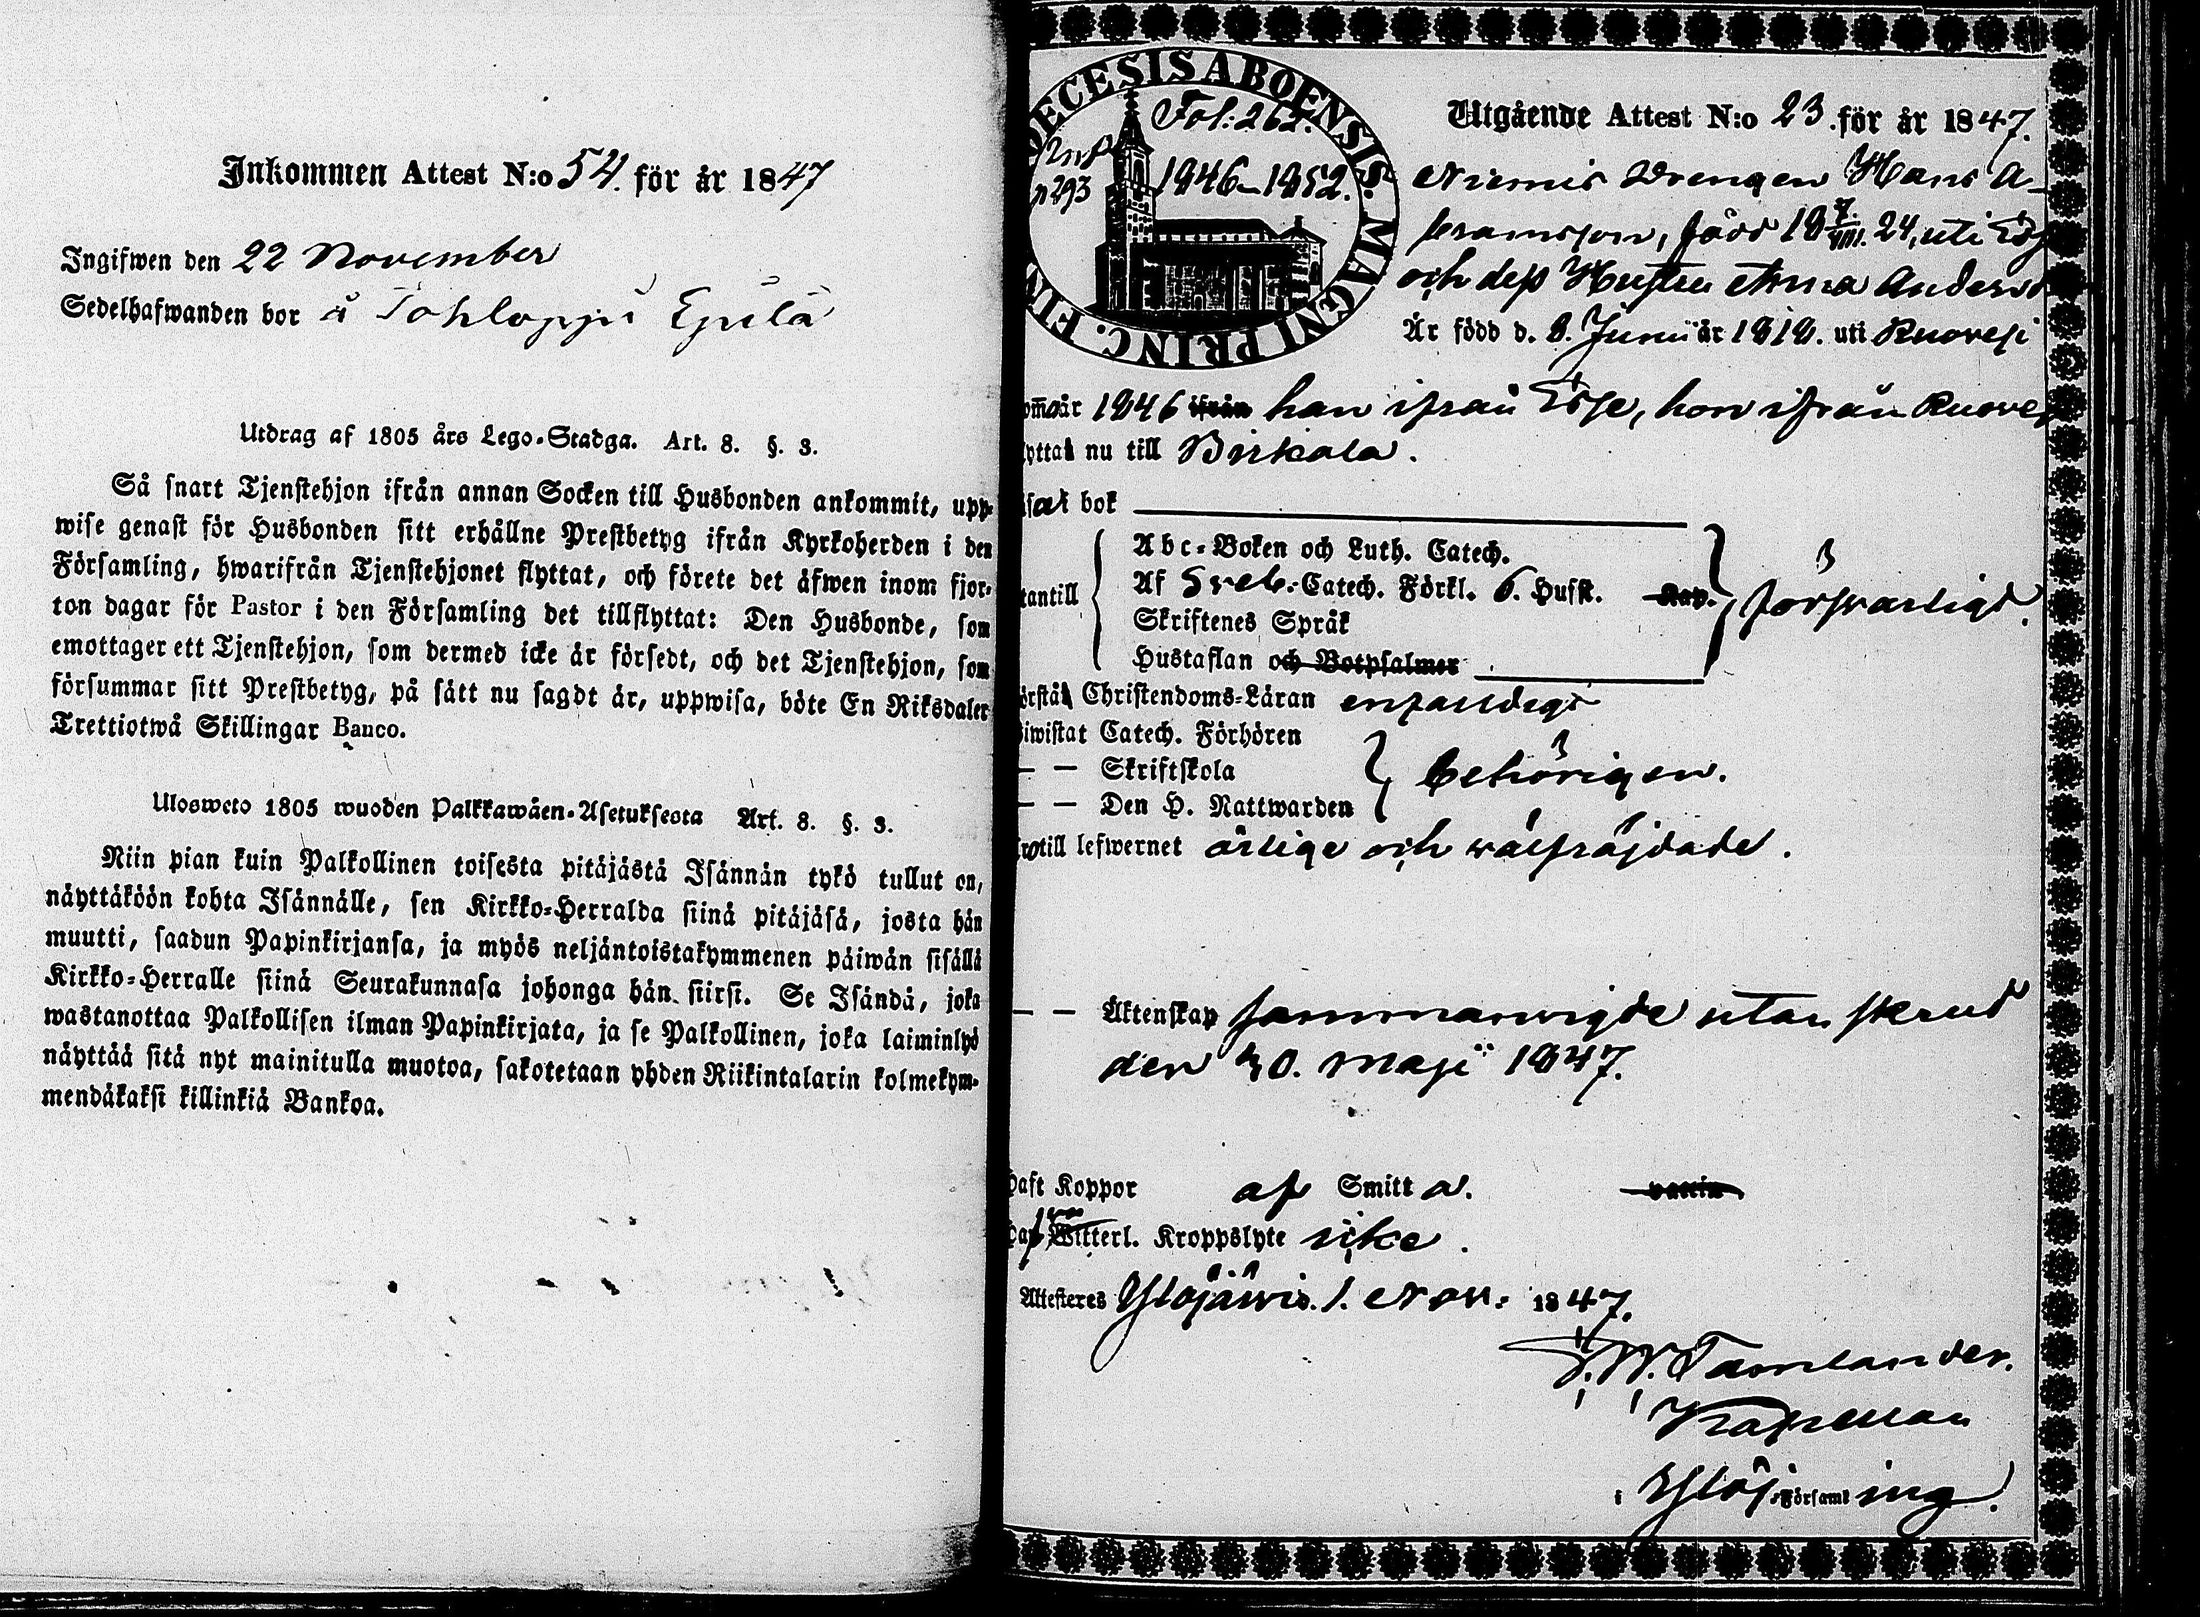 Inkommen Attest N:o 54. för år 1847
Ingifwen den 22 November
Sedelhafwanden bor å Tohloppi Ejilä
Utdrag af 1805 års Lego-Stadga. Art. 8. §. 3.
Så snart Tjenstehjon ifrån annan Socken till Husbonden ankommit, upp-
wise genast för Husbonden sitt erhållne Prestbetyg ifrån Kyrkoherden i den
Församling, hwarifrån Tjenstehjonet flyttat, och förete det äfwen inom fjor-
ton dagar för Pastor i den Församling det tillflyttat: Den Husbonde, som
emottager ett Tjenstehjon, som dermed icke är försedt, och det Tjenstehjon, som
försummar sitt Prestbetyg, på sätt nu sagdt är, uppwisa, böte En Riksdaler
Trettiotwå Skillingar Banco.
Ulosweto 1805 wuoden Palkkawäen-Asetuksesta Art. 8. §. 3.
Niin pian kuin Palkollinen toisesta pitäjästä Isännän tykö tullut on,
näyttäköön kohta Isännälle, sen Kirkko-Herralda siinä pitäjäsä, josta hän
muutti, saadun Papinkirjansa, ja myös neljäntoistakymmenen päiwän sisällä
Kirkko-Herralle siinä Seurakunnasa johonga hän siirsi. Se Isändä, joka
wastanottaa Palkollisen ilman Papinkirjata, ja se Palkollinen, joka laiminlyö
näyttää sitä nyt mainitulla muotoa, sakotetaan yhden Riikintalarin kolmekym-
mendäkaksi killinkiä Bankoa.
DECESIS ABOENSIS. MAGNI PRINC. FIN
Fol: 262.
p 293
1846-1852.
Utgående Attest N:o 23. för år 1847.
Niemis Drengen Hans A-
bramsson, född 18 7/VIII. 24, uti
och dess Hustru Anna Anders
Är född d. 8. Junii år 1818. uti Ruovesi
år 1846 ifrån han ifrån, hon ifrån Ruovesi
nu till Birkala.
bok
Abc-Boken och Luth. Catech.
Af Sveb. Catech. Förkl. 6. Hufst. Kap.
Skriftenes Språk
Hustaflan och Botpsalmer
försvarligt.
Christendoms-Läran enfaldigt
Biwistat Catech. Förhören
— — Skriftskola
— — Den H. Nattwarden
behörigen.
till lefwernet ärlige och välfräjdade.
— — Äktenskap sammanvigde utan skrud
den 30. Maji 1847.
Haft Koppor af Smitta. vaccin.
Witterl. Kroppslyte icke.
Attesteres Ylöjärvi. 1. Nov: 1847.
F. W. Tamlander.
Kapellan
i Ylöj. Församling.